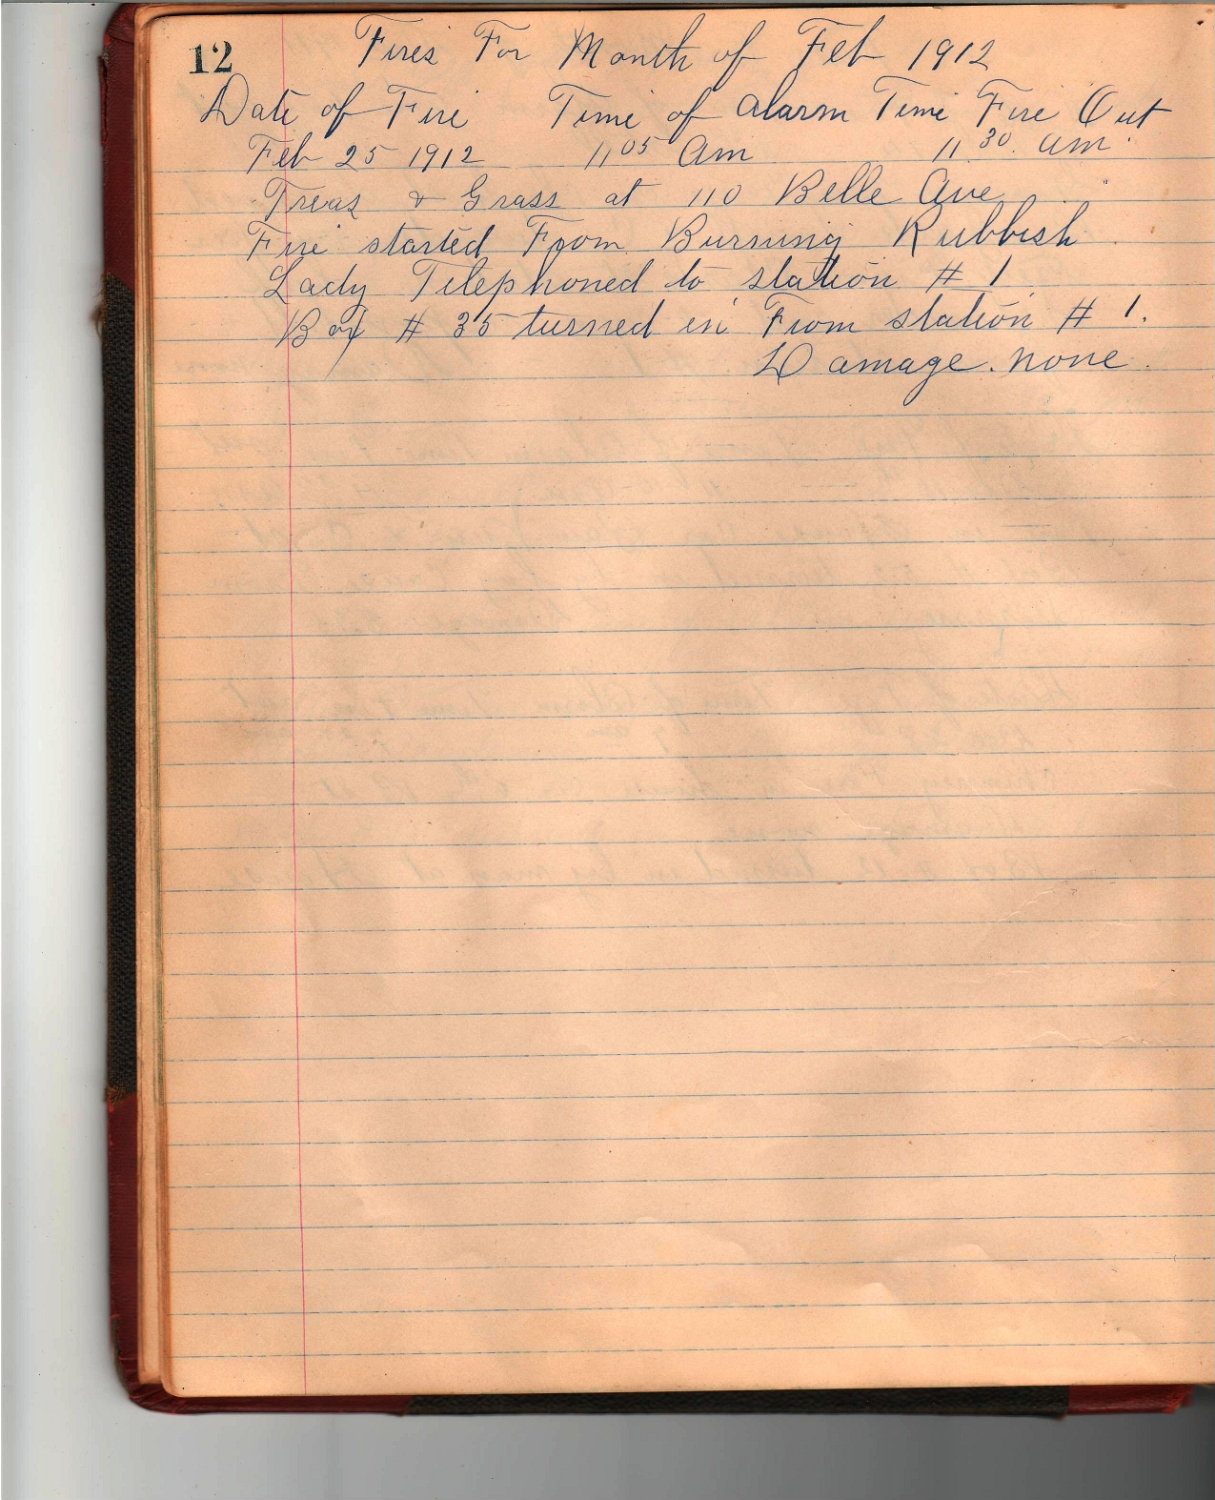 12 Fires For Month of Feb 1912
Date of Fire Time of alarm Time Fire Out
Feb 25 1912 11 05 Am 11 30. am.
Treas & Grass at 110 Belle Ave
Fire started From Burning Rubbish
Lady Telephoned to station # 1
Box # 35 turned in From station # 1.
Damage. none.